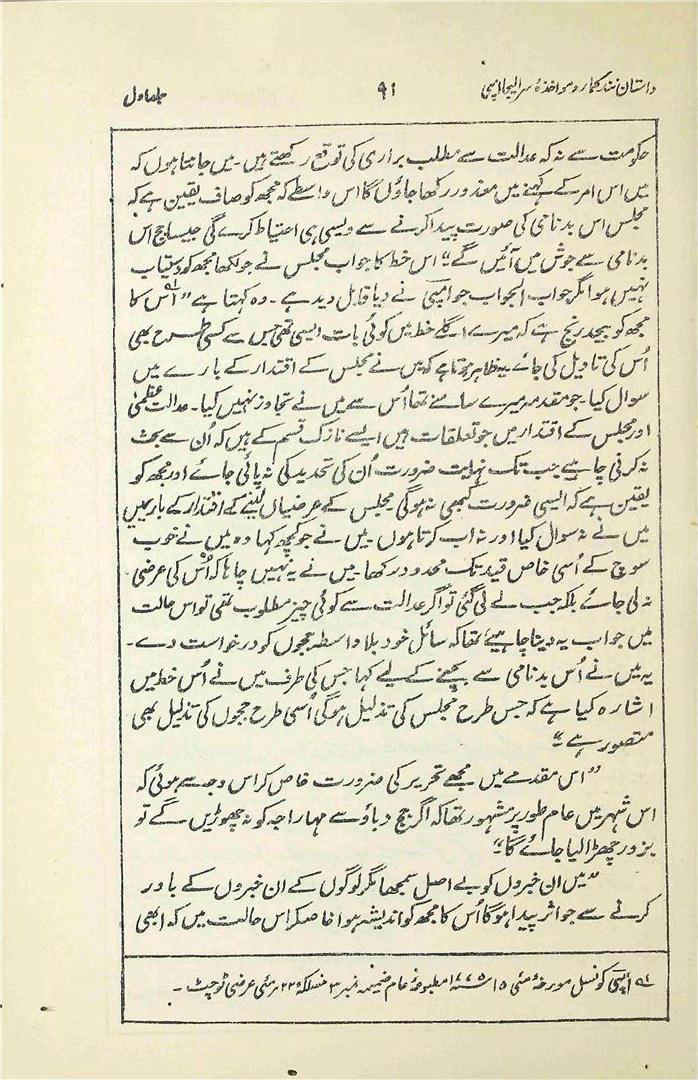 داستان نند کمار و مواخذۂ سر الیجا امپی ۹۱ جلد اول
حکومت سے نہ کہ عدالت سے مطلب براری کی توقع رکھتے ہیں۔ میں جانتا ہوں کہ
میں اس امر کے کہنے میں معذور رکھا جاؤں گا اس واسطے کہ مجھ کو صاف یقین ہے کہ
مجلس اس بدنامی کی صورت پیدا کرنے سے ویسی ہی احتیاط کرے گی جیسا جج اس
بدنامی سے جوش میں آئیں گے“ اس خط کا جواب مجلس نے جو لکھا مجھ کو دستیاب
نہیں ہوا مگر جواب الجواب جو امپی نے دیا قابل دید ہے۔ وہ کہتا ہے ”۹۱ اس کا
مجھ کو بیحد رنج ہے کہ میرے اگلے خط میں کوئی بات ایسی تھی جس سے کسی طرح بھی
اُس کی تاویل کی جائے یہ ظاہر ہوتا ہے کہ میں نے مجلس کے اقتدار کے بارے میں
سوال کیا۔ جو مقدمہ میرے سامنے تھا اُس سے میں نے تجاوز نہیں کیا۔ عدالت عظمیٰ
اور مجلس کے اقتدار میں جو تعلقات ہیں ایسے نازک قسم کے ہیں کہ اُن سے بحث
نہ کرنی چاہیے جب تک نہایت ضرورت اُن کی تحدید کی نہ پائی جائے اور مجھ کو
یقین ہے کہ ایسی ضرورت کبھی نہ ہوگی مجلس کے عرضیاں لینے کے اقتدار کے بارے میں
میں نے نہ سوال کیا اور نہ اب کرتا ہوں۔ میں نے جو کچھ کہا وہ میں نے خوب
سوچ کے اُسی خاص قید تک محدود رکھا۔ میں نے یہ نہیں چاہا کہ اُس کی عرضی
نہ لی جائے بلکہ جب لے لی گئی تو اگر عدالت سے کوئی چیز مطلوب تھی تو اس حالت
میں جواب یہ دینا چاہیئے تھا کہ سائل خود بلا واسطہ ججوں کو درخواست دے۔
یہ میں نے اُس بدنامی سے بچنے کے لیے کہا جس کی طرف میں نے اُس خط میں
اشارہ کیا ہے کہ جس طرح مجلس کی تذلیل ہوگی اُسی طرح ججوں کی تذلیل بھی
متصور ہے“
”اس مقدمے میں مجھے تحریر کی ضرورت خاص کر اس وجہ سے ہوئی کہ
اس شہر میں عام طور پر مشہور تھا کہ اگر جج دباؤ سے مہاراجہ کو نہ چھوڑیں گے تو
بزور چھڑا لیا جائے گا“
”میں ان خبروں کو بے اصل سمجھا مگر لوگوں کے ان خبروں کے باور
کرنے سے جو اثر پیدا ہوگا اُس کا مجھ کو اندیشہ ہوا خاص کر اس حالت میں کہ ابھی
۹۱ امپی کونسل مورخۂ مئی ۱۵ سنہ ۱۷۷۵ مطبوعۂ عام ضمیمہ نمبر ۳ منسلکۂ ۲۲ مئی عرضی ٹوچٹ۔